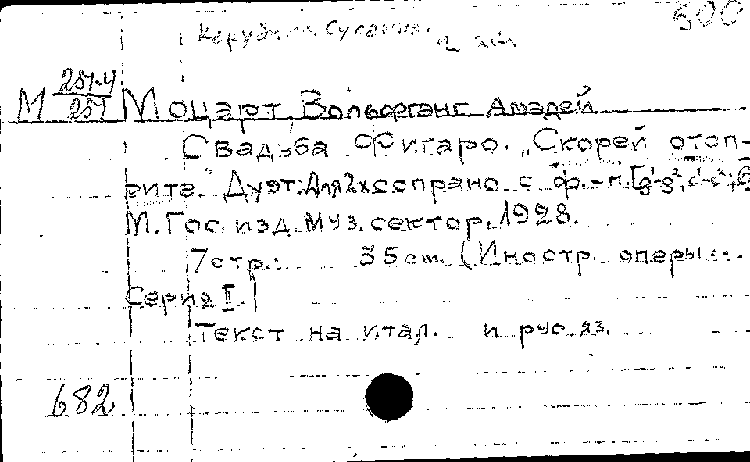 Керубино, Сусанна.
500
М 257-4/257 Моцарт, Вольфганг Амадей
Свадьба Фигаро. „Скорей отоп-
рите." Дуэт: Для 2х сопрано с ф.-п.
М. Гос. изд. Муз. сектор. 1928.
7 стр. 35 см. (Иностр. оперы.
Серия I.)
Текст на итал. и рус. яз.
682